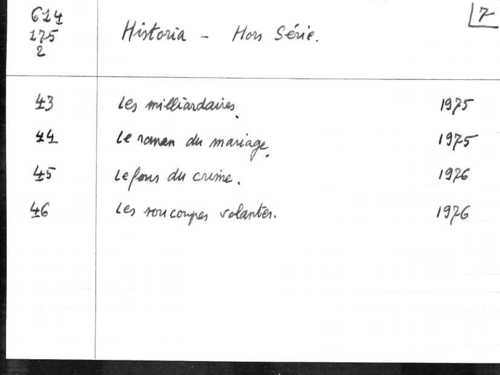 614
175
2
Historia - Hors Série.
7
43 Les milliardaires. 1975
44 Le roman du mariage. 1975
45 Le fous du crime. 1976
46 Les soucoupes volantes. 1976